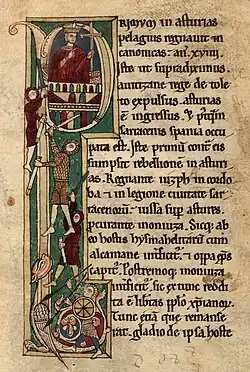 PRimum in asturias
pelagius regnauit in
canonicas · añ · xviiii ·
Iste ut supradiximus ·
a uitizane rege de tole
to expulsus · asturias
ē ingressus · & p̄q̄m
sarraceni spania occu
pata est · Iste primū contr̄ eis
sumpsit rebellionē in asturi
as · Regnante iuzeph in cordo
ba & in legione ciuitate sar
racenorū · iussa sup astures ·
pcurante monuza · Sicq; ab
eo hostis hysmahelitarū cum
alcamane int̄ficit̄ · & oppa eps̄
capit̄ · Postremoq; monuza
int̄ficit̄ · sic ex tunc reddi
ta ē libertas pp̄lo xp̄ianor̄ ·
Tunc etiā que remanse
rat · gladio de ipsa hoste